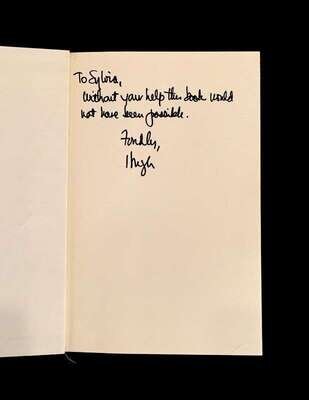 To Sylvia,
Without your help this book would
not have been possible.
Fondly,
Hugh